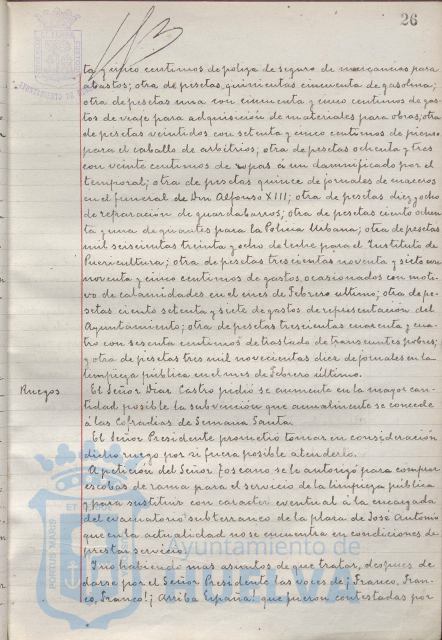 26
ta y cinco centimos de poliza de seguro de mercancias para
abastos; otra de pesetas, quinientas cincuenta de gasolina;
otra de pesetas una con cincuenta y cinco centimos de gas-
tos de viaje para adquisición de materiales para obras; otra
de pesetas veintidos con setenta y cinco centimos de pienso
para el caballo de arbitrios; otra de pesetas ochenta y tres
con veinte centimos de ropas á un damnificado por el
temporal; otra de pesetas quince de jornales de
en el funeral de Don Alfonso XIII; otra de pesetas diez y ocho
de reparación de guardabarros; otra de pesetas ciento ochen-
ta y una de guantes para la Policia Urbana; otra de pesetas
mil seiscientas treinta y ocho de leche para el Instituto de
Puericultura; otra de pesetas trescientas noventa y siete con
noventa y cinco centimos de gastos ocasionados con moti-
vo de calamidades en el mes de Febrero ultimo; otra de pe-
setas ciento setenta y siete de gastos de representación del
Ayuntamiento; otra de pesetas trescientas cuarenta y cua-
tro con sesenta centimos de traslado de transeuntes pobres;
y otra de pesetas tres mil novecientas diez de jornales en la
limpieza pública en el mes de Febrero último.
Ruegos
El Señor Diaz Castro pidió se aumenta en la mayor can-
tidad posible la subvención que anualmente se concede
á las Cofradias de Semana Santa.
El Señor Presidente prometió tomar en consideración
dicho ruego por si fuera posible atenderlo.
A petición del Señor Toscano se le autorizó para comprar
escobas de rama para el servicio de la limpieza pública
y para sustituir con caracter eventual á la encargada
del evacuatorio subterraneo de la plaza de José Antonio
que en la actualidad no se encuentra en condiciones de
prestar servicio.
Y no habiendo mas asuntos de que tratar, despues de
darse por el Señor Presidente las voces de ¡Franco, Fran-
co, Franco!; Arriba España! que fueron contestadas por
Ayuntamiento de
PORTUS MARIS ET